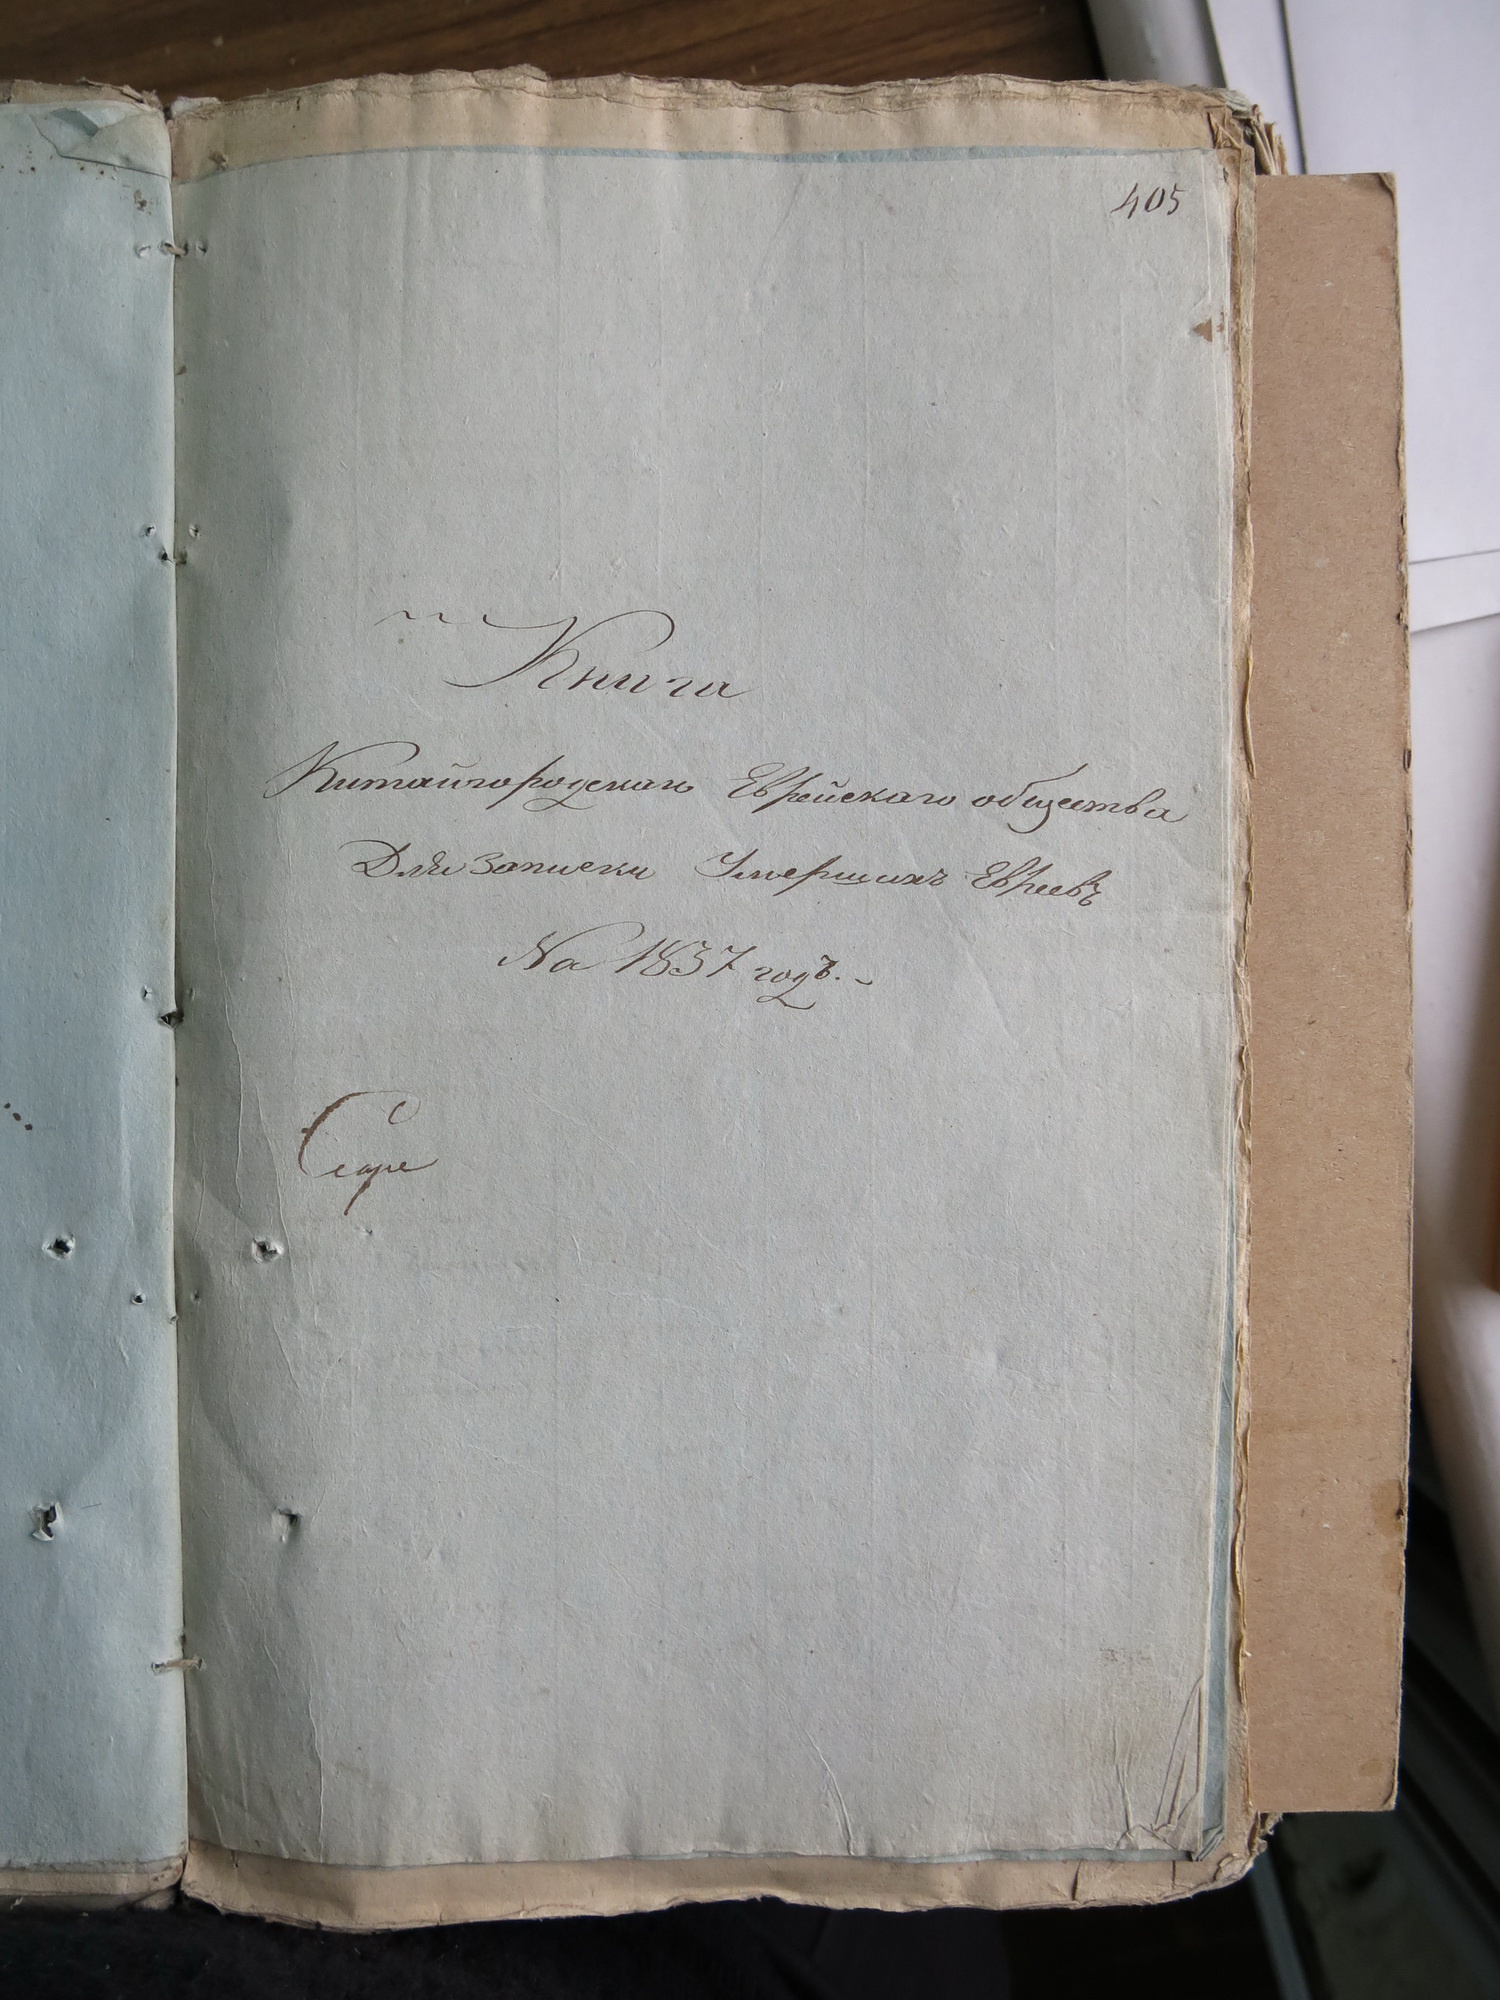 405
Книга
Китайгородскаго Еврейскаго общества
Для записки Умершихъ Евреевъ
На 1837 годъ.